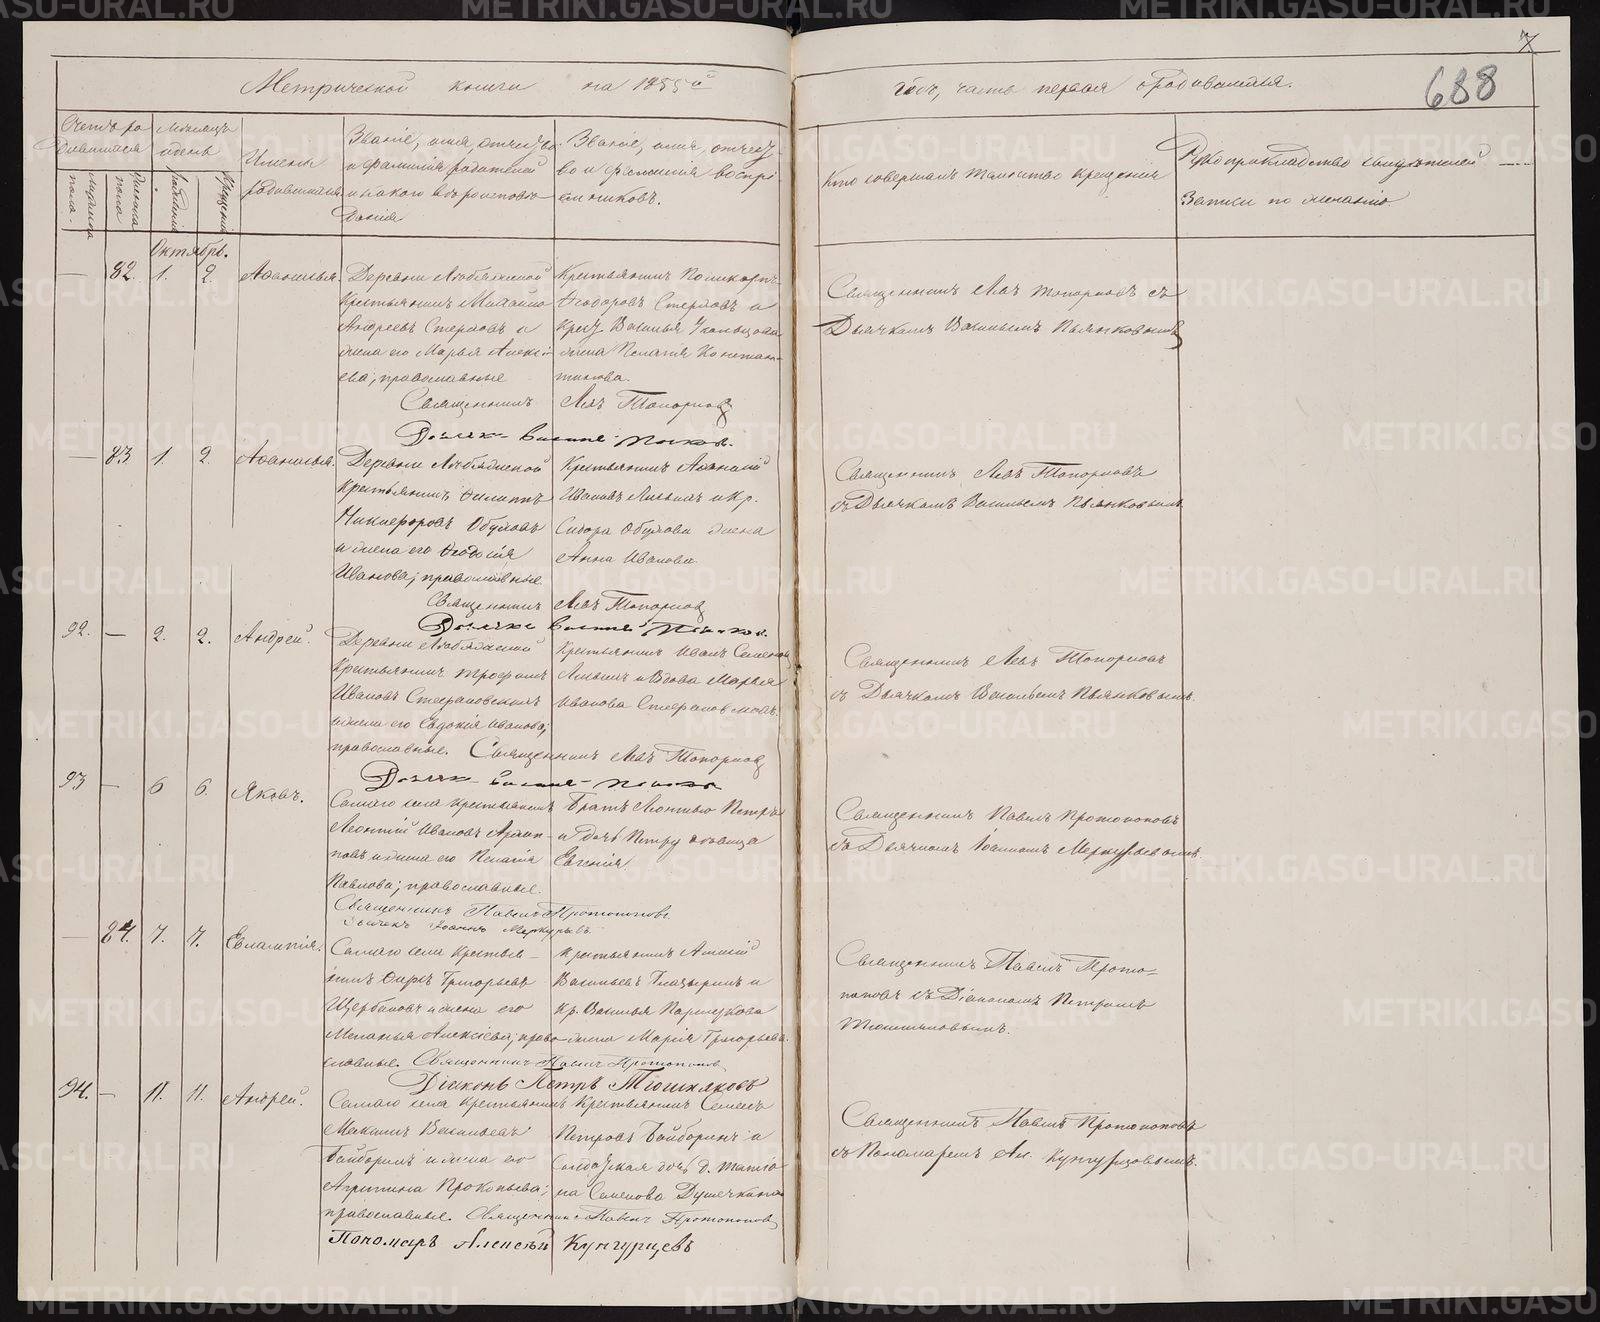 7
688
Метрической книги на 1855й
годъ, часть первая о родившихся.
Счетъ ро
дившихся
Мѣсяцъ
и день
Имена
родившихся
Званіе, имя, отчество
и фамилія родителей
и какого вѣроисповѣ-
данія
Званіе, имя, отчест-
во и фамилія воспрі-
емниковъ.
Кто совершалъ таинство крещенія
Рукоприкладство свидѣтелей
записи по желанію.
мужеска
пола
женска
пола
рожденія
крещенія
Октябрь.
— 82. 1. 2. Аѳанасья.
Деревни
крестьянинъ Михайло
Андреевъ Стерховъ и
жена его Марья Алексѣ-
ева; православные
Крестьянинъ Поликарпъ
Ѳеодоровъ Стерховъ и
Василья
жена Пелагія Констан-
тинова.
Священникъ Левъ Топорковъ
Священникъ Левъ Топорковъ съ
Дьячкомъ Васильемъ Пьянковымъ
— 83 1. 2. Аѳанасья.
Деревни
крестьянинъ Филиппъ
Никифоровъ Обуховъ
и жена его Ѳеодосія
Иванова; православные
Крестьянинъ Аѳанасій
Ивановъ и кр.
Сидора Обухова жена
Анна Иванова
Священникъ Левъ Топорковъ
Священникъ Левъ Топорковъ
съ Дьячкомъ Васильемъ Пьянковымъ.
92. — 2. 2. Андрей.
Деревни
крестьянинъ Трофимъ
Ивановъ Стефановскихъ
и жена его Евдокія Иванова;
православные. Священникъ Левъ Топорковъ
Крестьянинъ Иванъ Семеновъ
и вдова Марья
Иванова Стефановскихъ.
Священникъ Левъ Топорковъ
съ Дьячкомъ Васильемъ Пьянковымъ.
93 — 6 6. Яковъ.
Самаго села крестьянинъ
Леонтій Ивановъ
и жена его Пелагія
Павлова; православные.
Братъ Леонтью Петръ
и дочь Петру дѣвица
Евгенія.
Священникъ Павелъ Протопоповъ
Дьячекъ Іоаннъ Меркурьевъ
Священникъ Павелъ Протопоповъ
съ Дьячкомъ Іоанномъ Меркурьевымъ.
— 84. 7. 7. Евлампія.
Самаго села крестья-
нинъ Григорьевъ
Щербаковъ и жена его
Меланья Алексѣева; право-
славные. Священникъ Павелъ Протопоповъ
Крестьянинъ Алексій
Васильевъ и
кр. Василья Паршукова
жена Марія Григорьева.
Діаконъ Петръ Тюшняковъ
Священникъ Павелъ Прото-
поповъ съ Діакономъ Петромъ
Тюшняковымъ.
94. — 11. 11. Андрей.
Самаго села крестьянинъ
Максимъ Васильевъ
Байборинъ и жена его
Агрипина Прокопьева;
православные. Священникъ Павелъ Протопоповъ
Крестьянинъ Семенъ
Петровъ Байборинъ и
Солдатская дочь д. Татья-
на Семенова Душечкина
Пономарь Алексѣй Кунгурцевъ
Священникъ Павелъ Протопоповъ
съ Пономаремъ Ал. Кунгурцовымъ.
METRIKI.GASO-URAL.RU